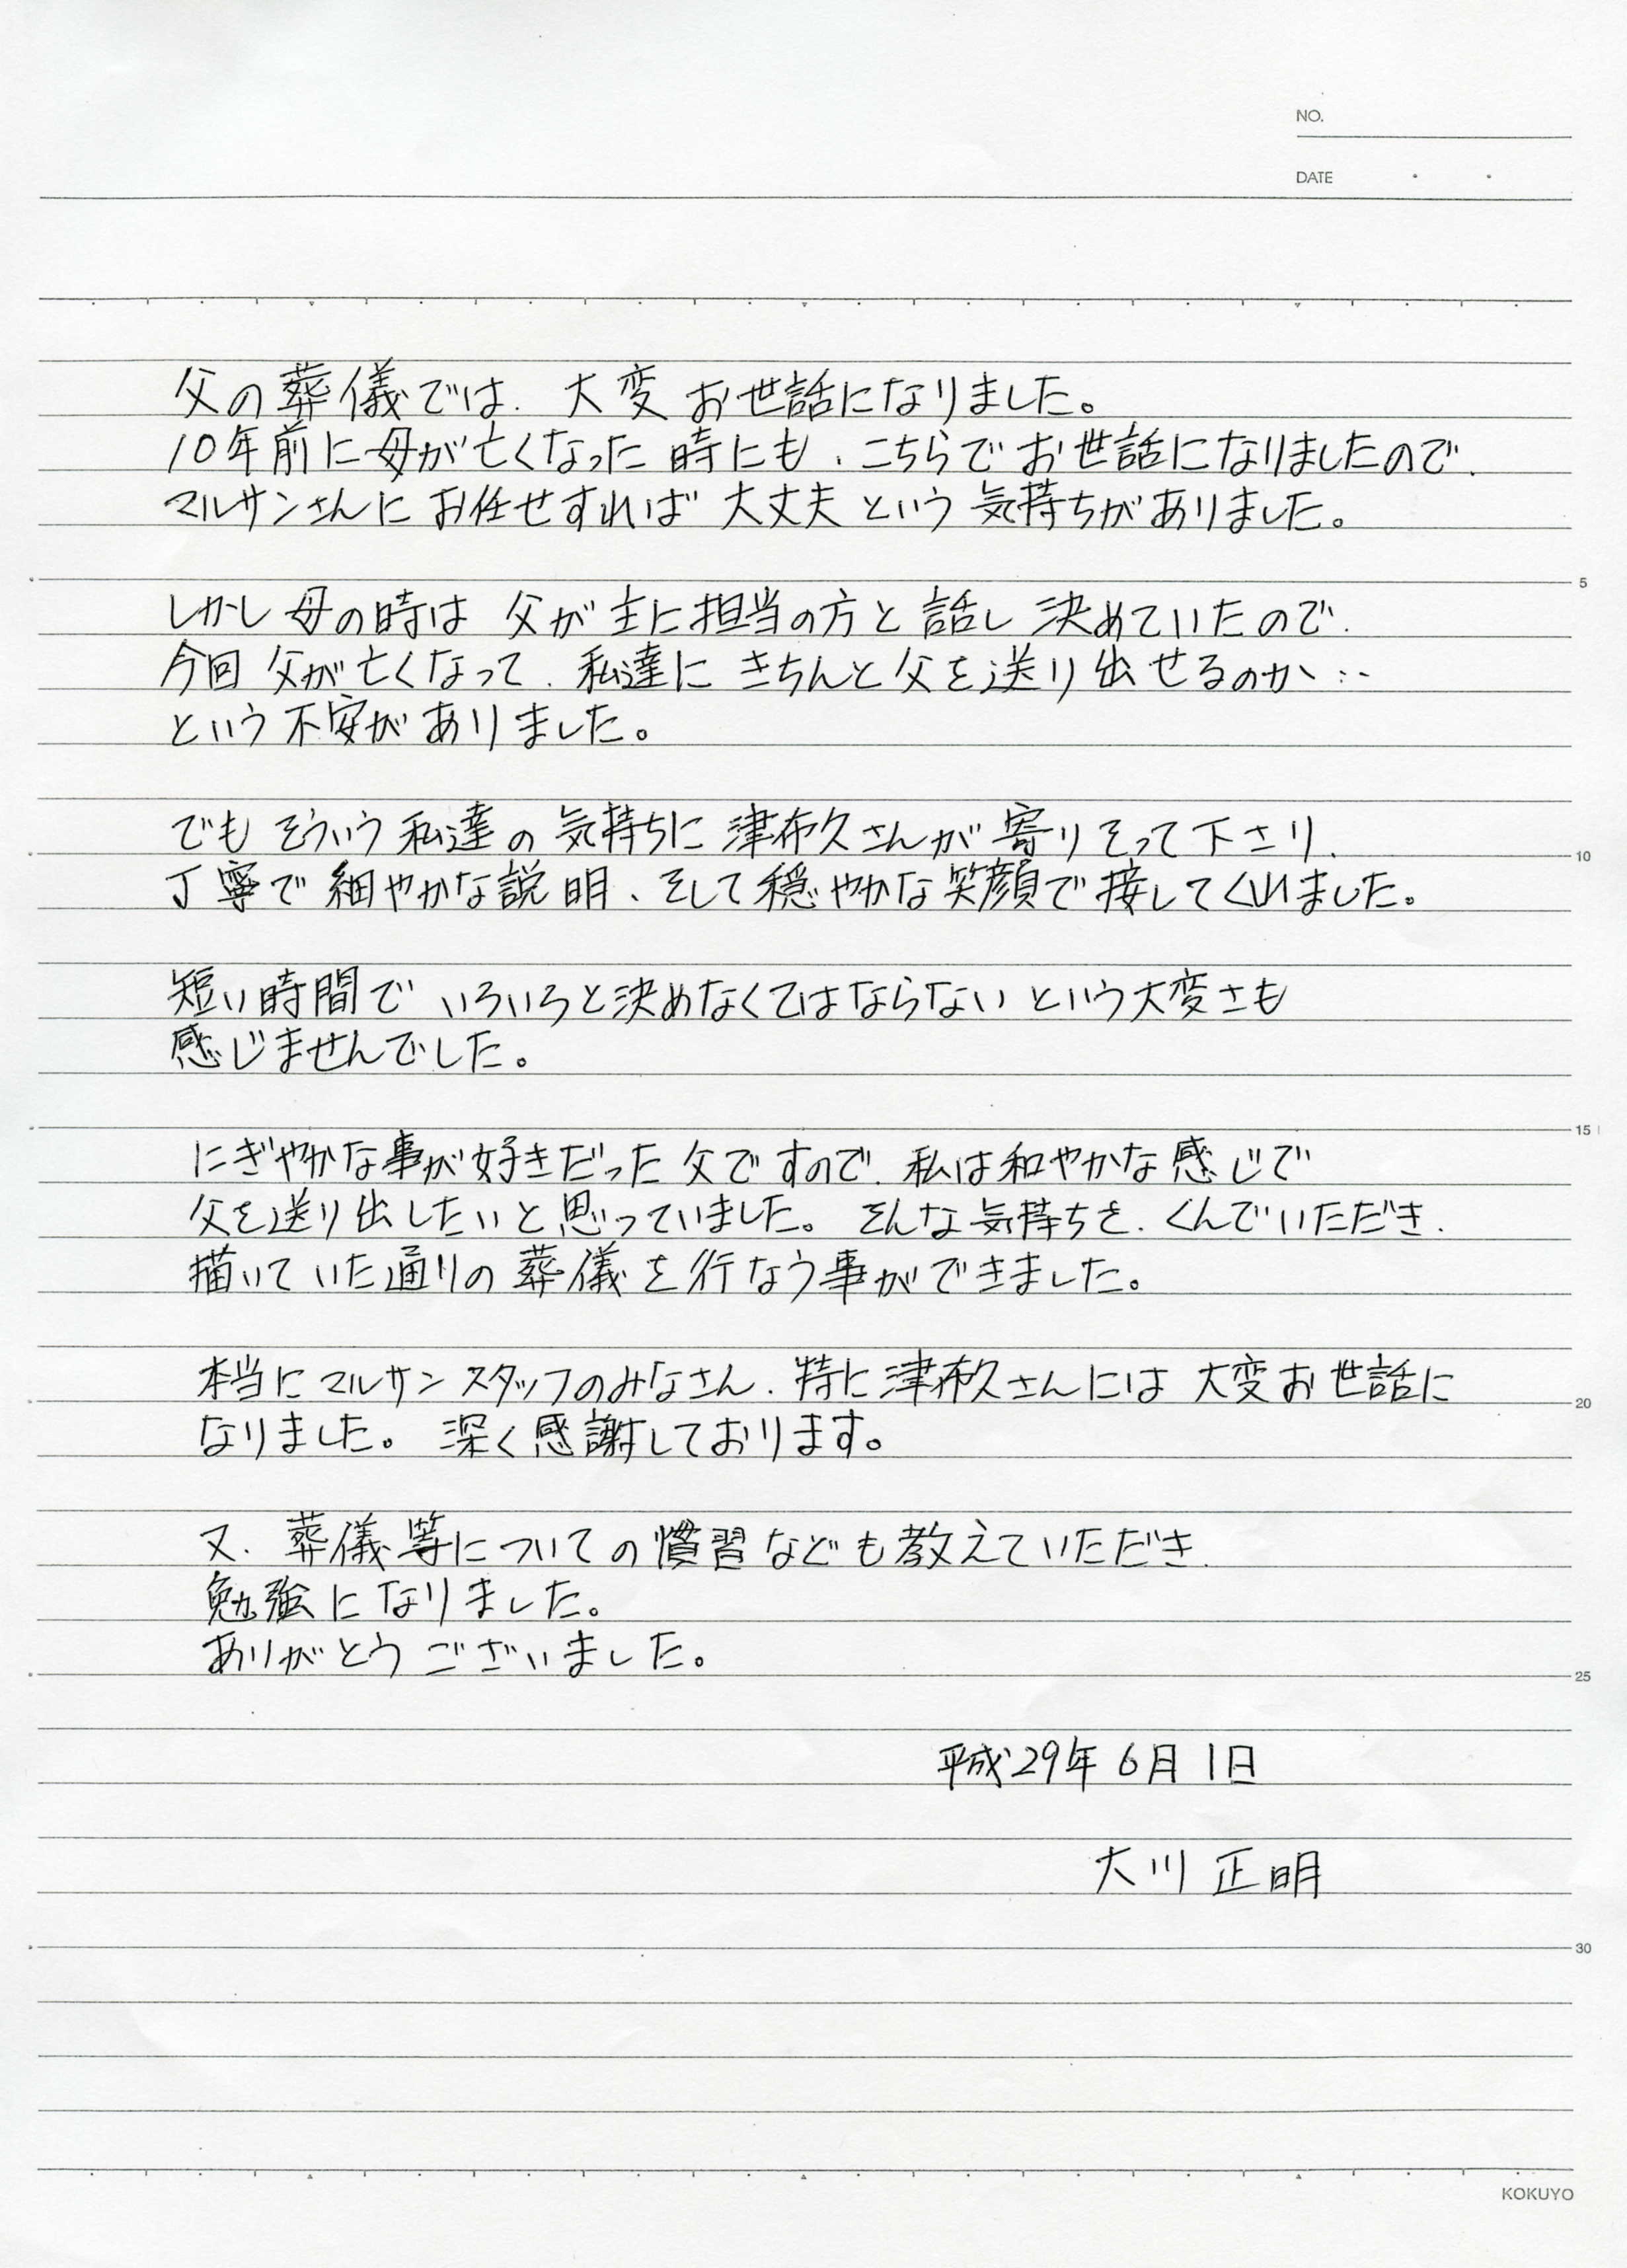 NO.
DATE
父の葬儀では、大変お世話になりました。
10年前に母が亡くなった時にも、こちらでお世話になりましたので、
マルサンさんにお任せすれば大丈夫という気持ちがありました。
5
しかし母の時は父が主に担当の方と話し決めていたので、
今回父が亡くなって、私達にきちんと父を送り出せるのか…
という不安がありました。
でもそういう私達の気持ちに津布久さんが寄りそって下さり、
10
丁寧で細やかな説明、そして穏やかな笑顔で接してくれました。
短い時間でいろいろと決めなくてはならないという大変さも
感じませんでした。
15
にぎやかな事が好きだった父ですので、私は和やかな感じで
父を送り出したいと思っていました。そんな気持ちを、くんでいただき、
描いていた通りの葬儀を行なう事ができました。
本当にマルサンスタッフのみなさん、特に津布久さんには大変お世話に
20
なりました。深く感謝しております。
又、葬儀等についての慣習なども教えていただき、
勉強になりました。
ありがとうございました。
25
平成29年6月1日
大川正明
30
KOKUYO